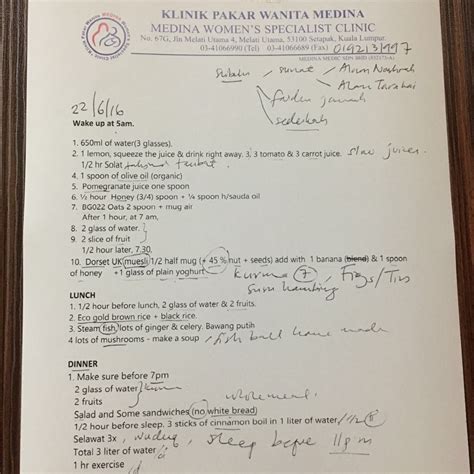 KLINIK PAKAR WANITA MEDINA
MEDINA WOMEN'S SPECIALIST CLINIC
No. 67G, Jln Melati Utama 4, Melati Utama, 53100 Setapak, Kuala Lumpur.
03-41066990 (Tel) 03-41066689 (Fax)
MEDINA MEDIC SDN BHD
sunat / Alam Nashrah
Alam Tarakai
sedekah
22/6/16
Wake up at 5am.
1. 650ml of water(3 glasses).
2. 1 lemon, squeeze the juice & drink right away. 3, 3 tomato & 3 carrot juice. slow juicer
1/2 hr Solat taubat
4. 1 spoon of olive oil (organic)
5. Pomegranate juice one spoon
6. ½ hour Honey (3/4) spoon + ¼ spoon h/sauda oil
7. BG022 Oats 2 spoon + mug air
After 1 hour, at 7 am,
8. 2 glass of water.
9. 2 slice of fruit
1/2 hour later, 7.30,
10. Dorset UK muesli 1/2 half mug (+ 45 % nut + seeds) add with 1 banana (blend) & 1 spoon
of honey +1 glass of plain yoghurt
kurma 7, Figs/Tin
susu kambing
LUNCH
1. 1/2 hour before lunch, 2 glass of water & 2 fruits.
2. Eco gold brown rice + black rice.
3. Steam fish, lots of ginger & celery. Bawang putih
4 lots of mushrooms - make a soup / fish ball home made
DINNER
1. Make sure before 7pm
2 glass of water
2 fruits
wholemeal
Salad and Some sandwiches (no white bread)
1/2 hour before sleep. 3 sticks of cinnamon boil in 1 liter of water
Selawat 3x, wuduq, sleep before 11pm
Total 3 liter of water
1 hr exercise